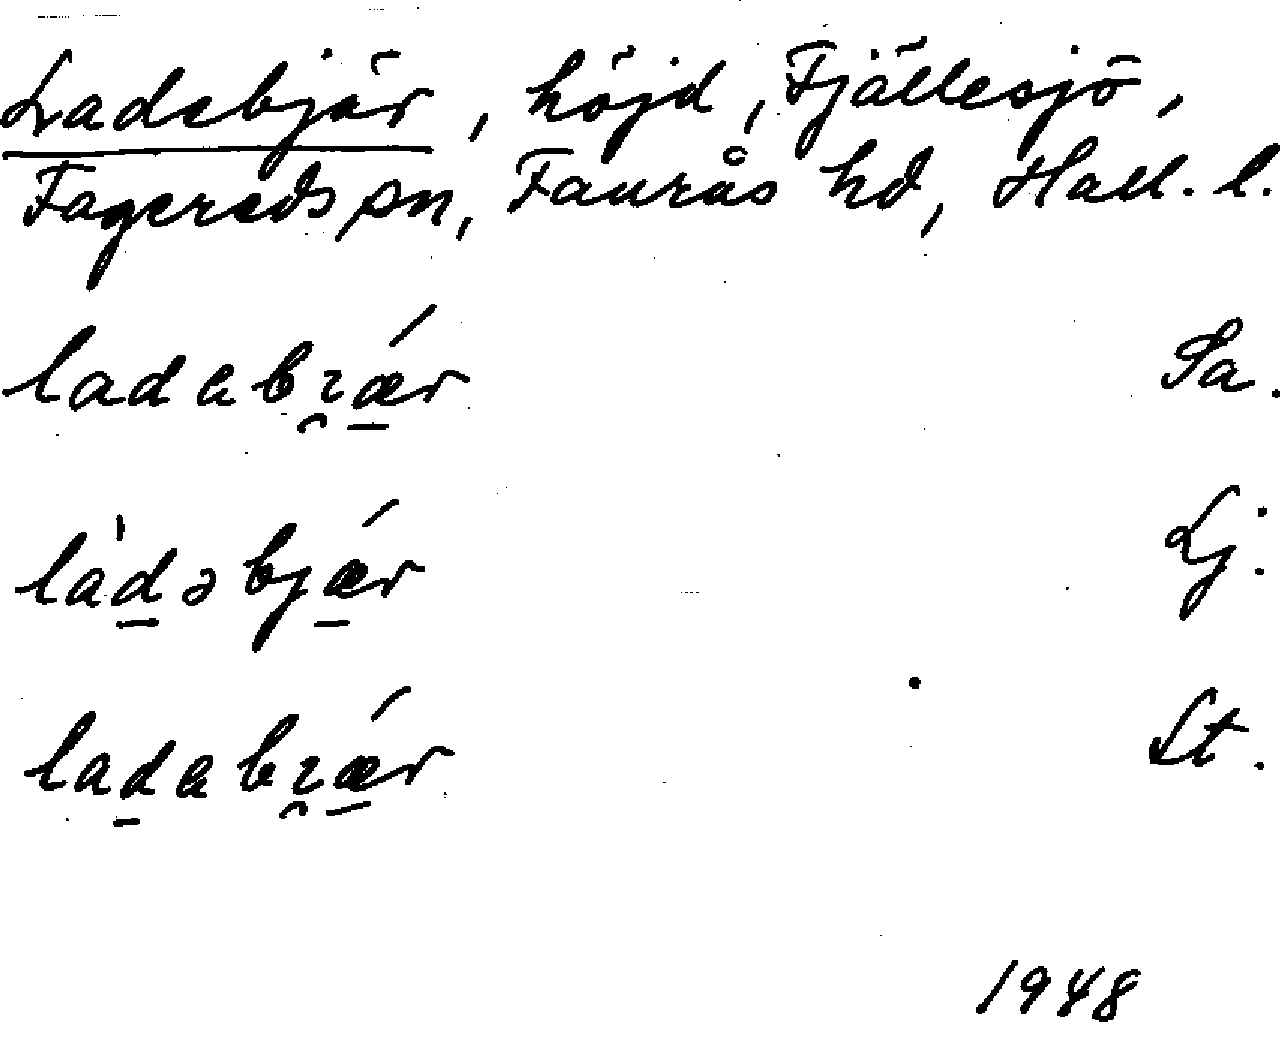 Ladebjär, höjd, Fjällesjö,
Fagereds sn, Faurås hd, Hall. l.
ladabı̯ǽ̠r Sa.
la̍d̠əbjǽ̠r Lj.
lad̠abı̯ǽ̠r St.
1948